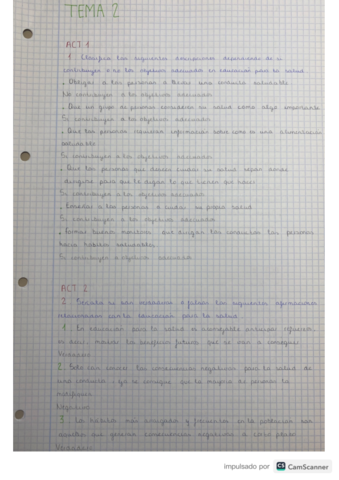 TEMA 2
ACT 1
1. Clasifica las siguientes descripciones dependiendo de si
contribuyen o no los objetivos adecuados en educación para la salud.
. Obligar a las personas a tener una conducta saludable
No contribuyen a los objetivos adecuados
. Que un grupo de personas consideren su salud como algo importante
Si contribuyen a los objetivos adecuados
. Que las personas reciban información sobre como es una alimentación
saludable
Si contribuyen a los objetivos adecuados
. Que las personas que deseen cuidar su salud sepan donde
dirigirse para que le digan lo que tienen que hacer
Si contribuyen a los objetivos adecuados
. Enseñar a las personas a cuidar su propia salud
Si contribuyen a los objetivos adecuados
. Formar buenos monitores que dirijan las conductas las personas
hacia hábitos saludables
Si contribuyen a objetivos adecuados
ACT. 2
2 Decide si son verdaderas o falsas las siguientes afirmaciones
relacionadas con la educación para la salud.
1. En educación para la salud es aconsejable anticipar refuerzos,
es decir, mostrar los beneficios futuros que se van a conseguir
Verdadero
2. Solo con conocer las consecuencias negativas para la salud de
una conducta ya se consigue que la mayoría de personas la
modifiquen
3. Los hábitos más arraigados y frecuentes en la población son
aquellos que generan consecuencias negativas a corto plazo
Verdadero
impulsado por CS CamScanner